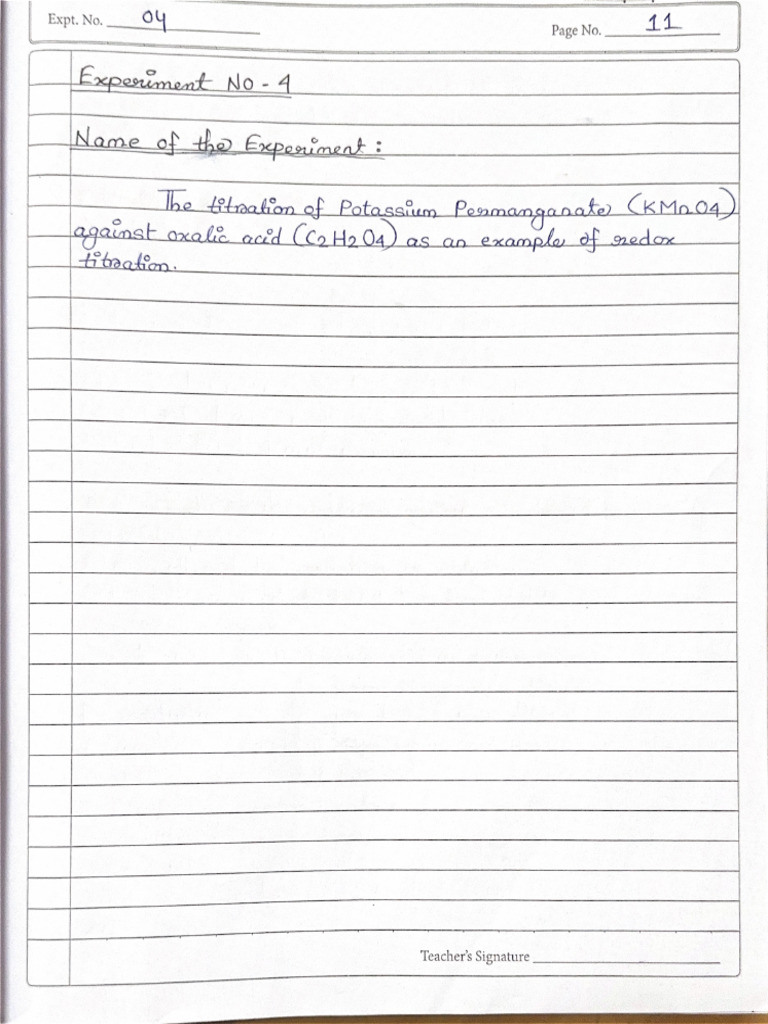 Expt. No. 04
Page No. 11
Experiment No - 4
Name of the Experiment :
The titration of Potassium Permanganate (KMnO4)
against oxalic acid (C2H2O4) as an example of redox
titration.
Teacher's Signature